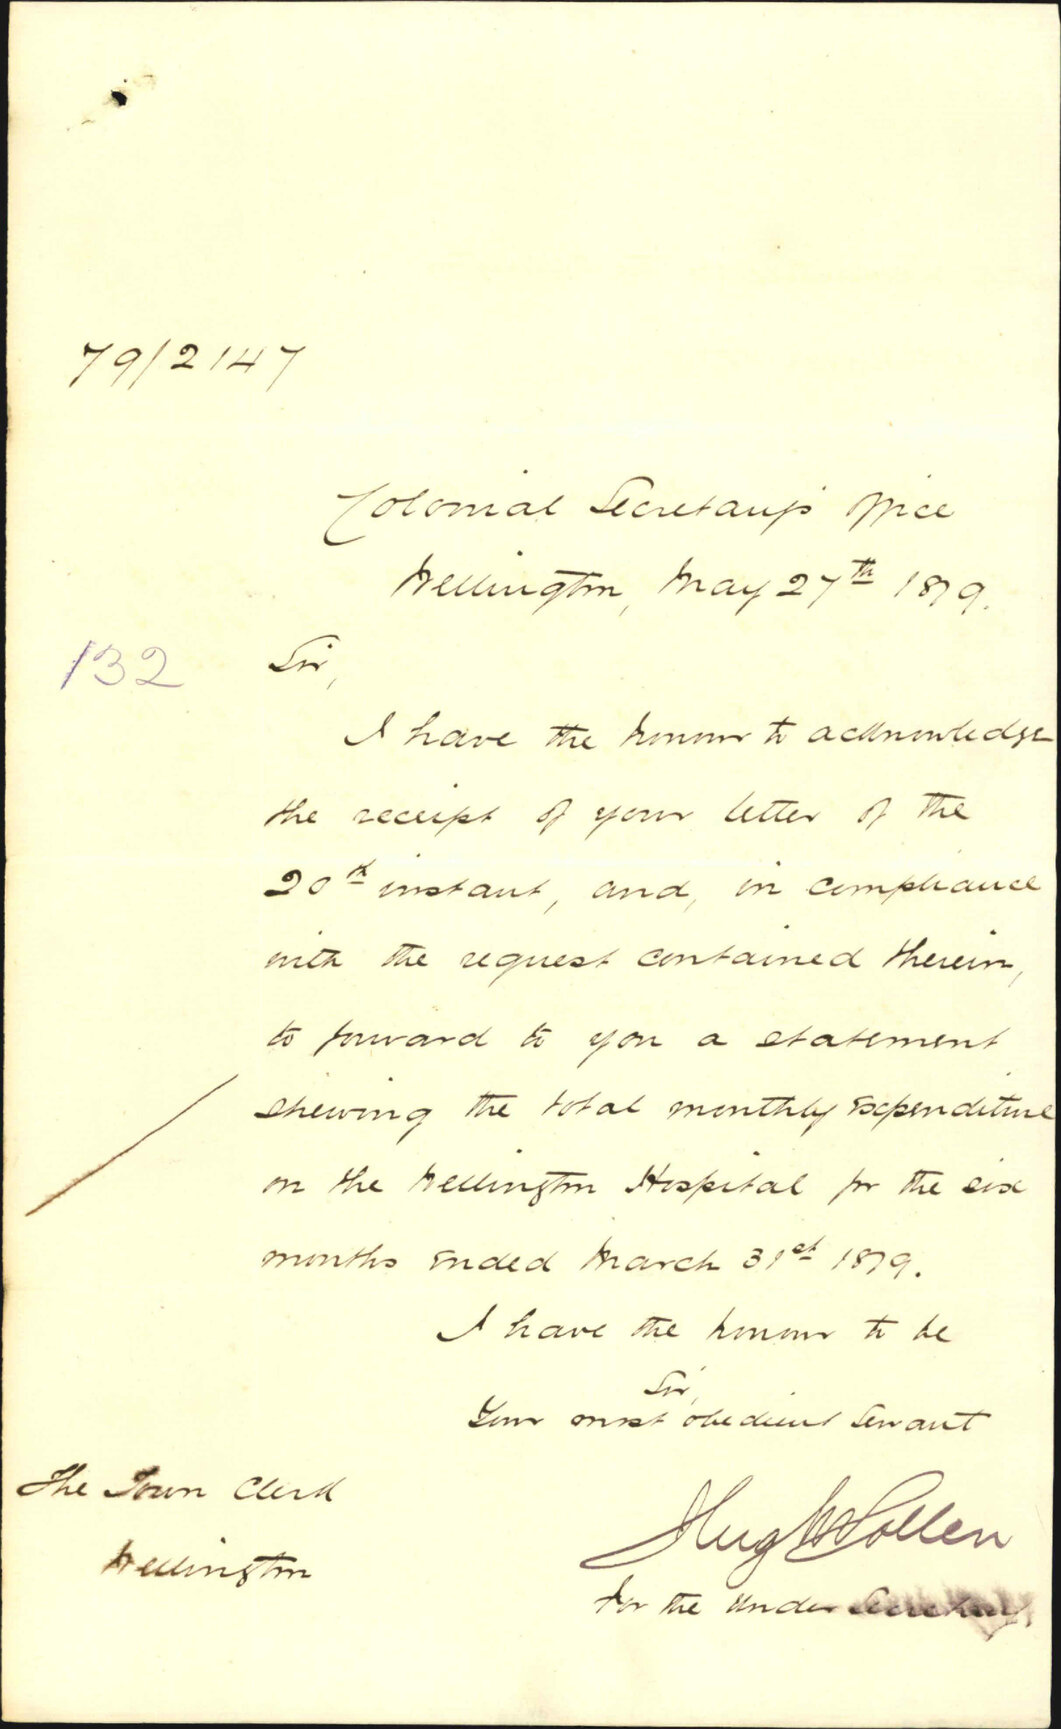 79/2147
Colonial Secretary's Office
Wellington, May 27th 1879.
132
Sir,
I have the honour to acknowledge
the receipt of your letter of the
20th instant, and, in compliance
with the request contained therein,
to forward to you a statement
shewing the total monthly Expenditure
on the Wellington Hospital for the six
months Ended March 31st 1879.
I have the honour to be
Sir,
Your most obedient Servant
Hugh Pollen
For the Under Secretary
The Town Clerk
Wellington